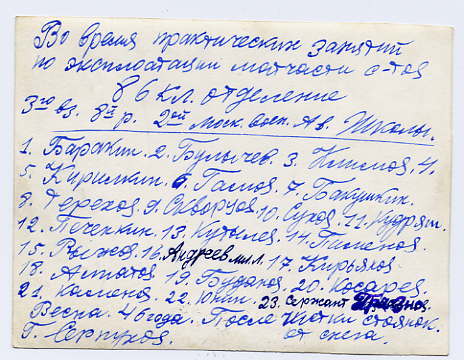 Во время практических занятий
по эксплоатации матчасти с-тоя
86 кл. отделение
3го вз. 8й р. 2ой Моск. воен. Ав. Школы.
1. Баракин. 2. Булычев. 3. Климов. 4.
5. Кирилкин. 6. 7. Бакушкин.
8. Терехов. 9. Скворцов. 10. Сухов. 11. Кудряш.
12. Печенкин. 13. 14. Пименов.
15. Рыжов. 16. Андреев мл. л. 17. Кирьяков.
18. Аматов 19. Буданов. 20. Косарев.
21. 22. Юкин. 23. Сержант
Весна. 46 года. После чистки стоянок.
Г. Серпухов. от снега.